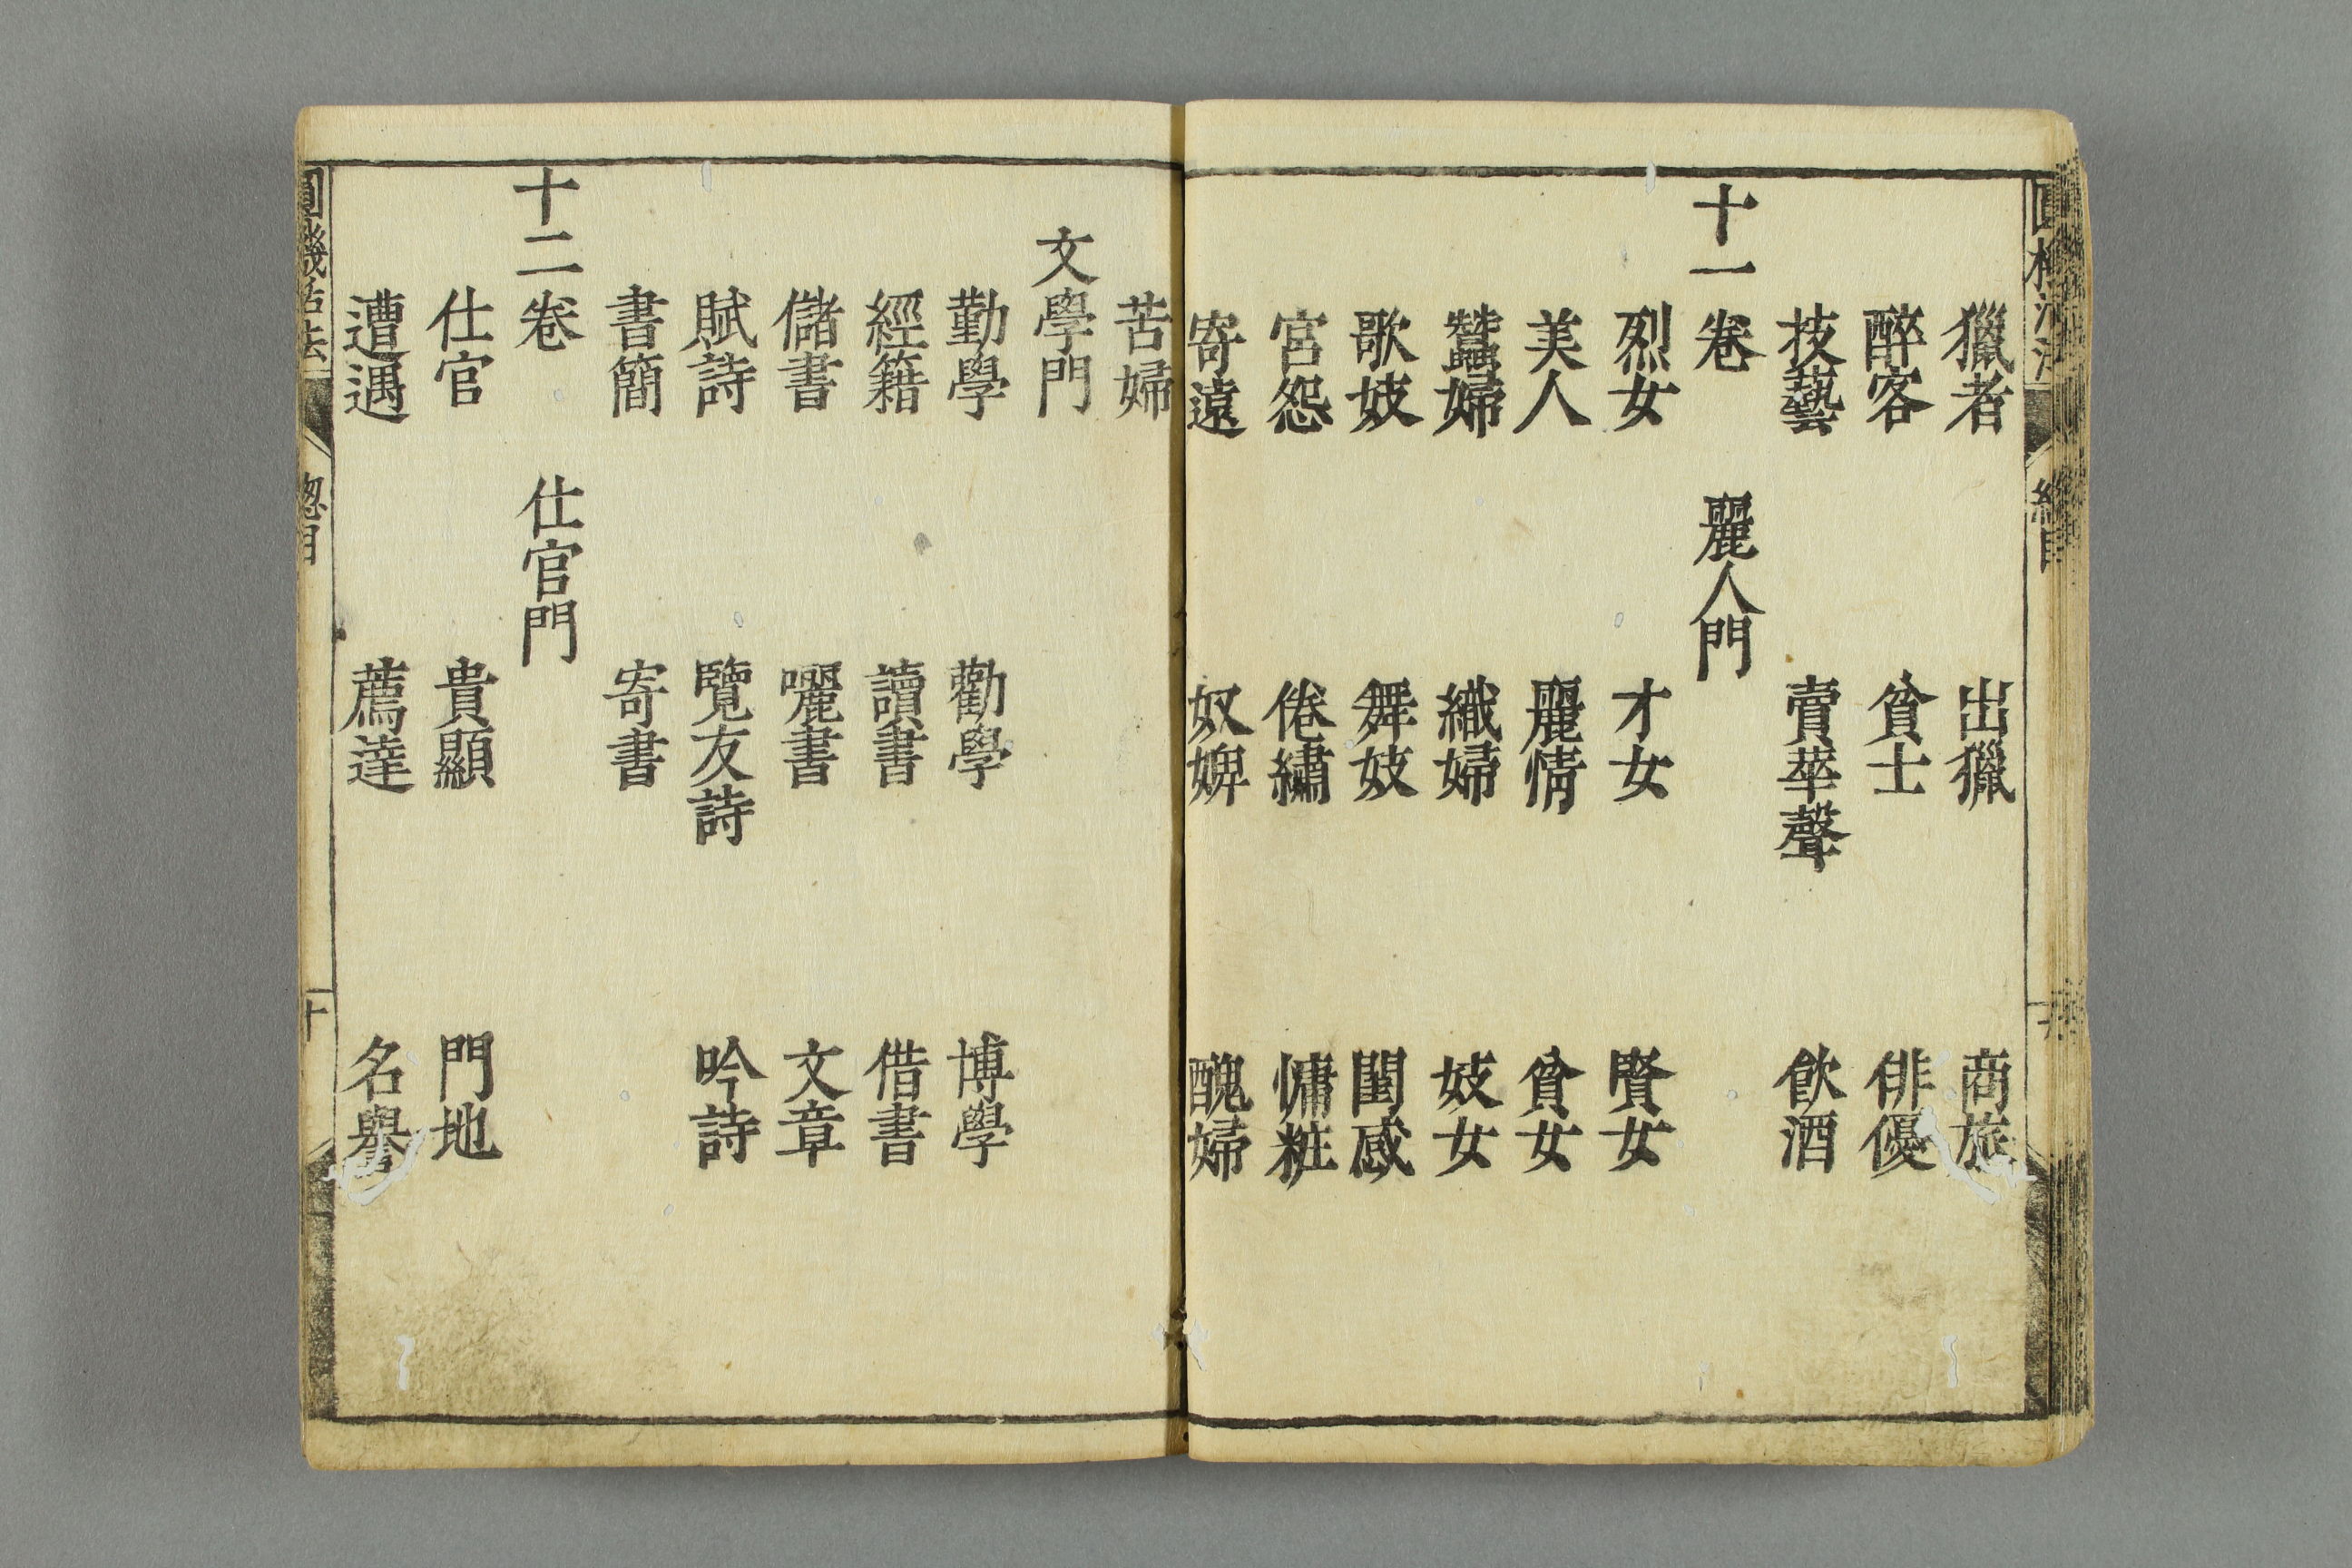 獵者 出獵 商旅
醉客 貧士 俳優
技藝 賣華聲 飲酒
十一卷 麗人門
烈女 才女 賢女
美人 麗情 貧女
蠶婦 織婦 妓女
歌妓 舞妓 閨感
宮怨 倦繡 慵粧
寄遠 奴婢 醜婦
苦婦
文學門
勤學 勸學 博學
經籍 讀書 借書
儲書 曬書 文章
賦詩 覽友詩 吟詩
書簡 寄書
十二卷 仕官門
仕官 貴顯 門地
遭遇 薦達 名譽
圓機活法 總目 十